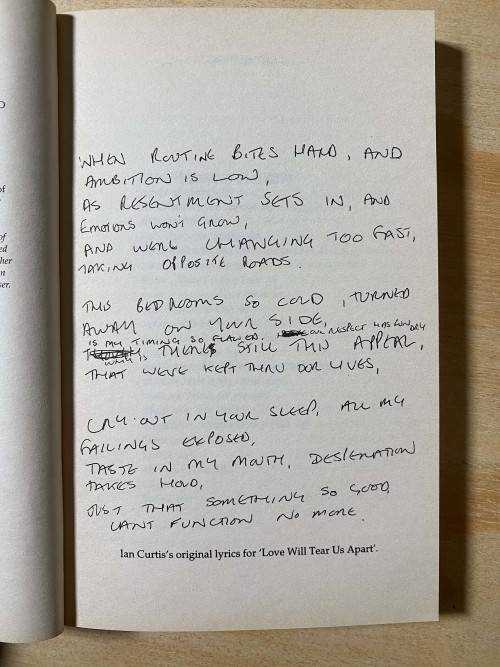 D
of
of
ed
her
n
ser.
WHEN ROUTINE BITES HARD, AND
AMBITION IS LOW,
AS RESENTMENT SETS IN, AND
EMOTIONS WON'T GROW,
AND WERE CHANGING TOO FAST,
TAKING OPPOSITE ROADS.
THIS BEDROOMS SO COLD, TURNED
AWAY ON YOUR SIDE,
IS MY TIMING SO FLAWED, OUR RESPECT RUN DRY
WHY IS THERES STILL THIS APPEAL,
THAT WEVE KEPT THRU OUR LIVES,
CRY OUT IN YOUR SLEEP, ALL MY
FAILINGS EXPOSED,
TASTE IN MY MOUTH, DESPERATION
TAKES HOLD,
JUST THAT SOMETHING SO GOOD,
CANT FUNCTION NO MORE.
Ian Curtis's original lyrics for 'Love Will Tear Us Apart'.